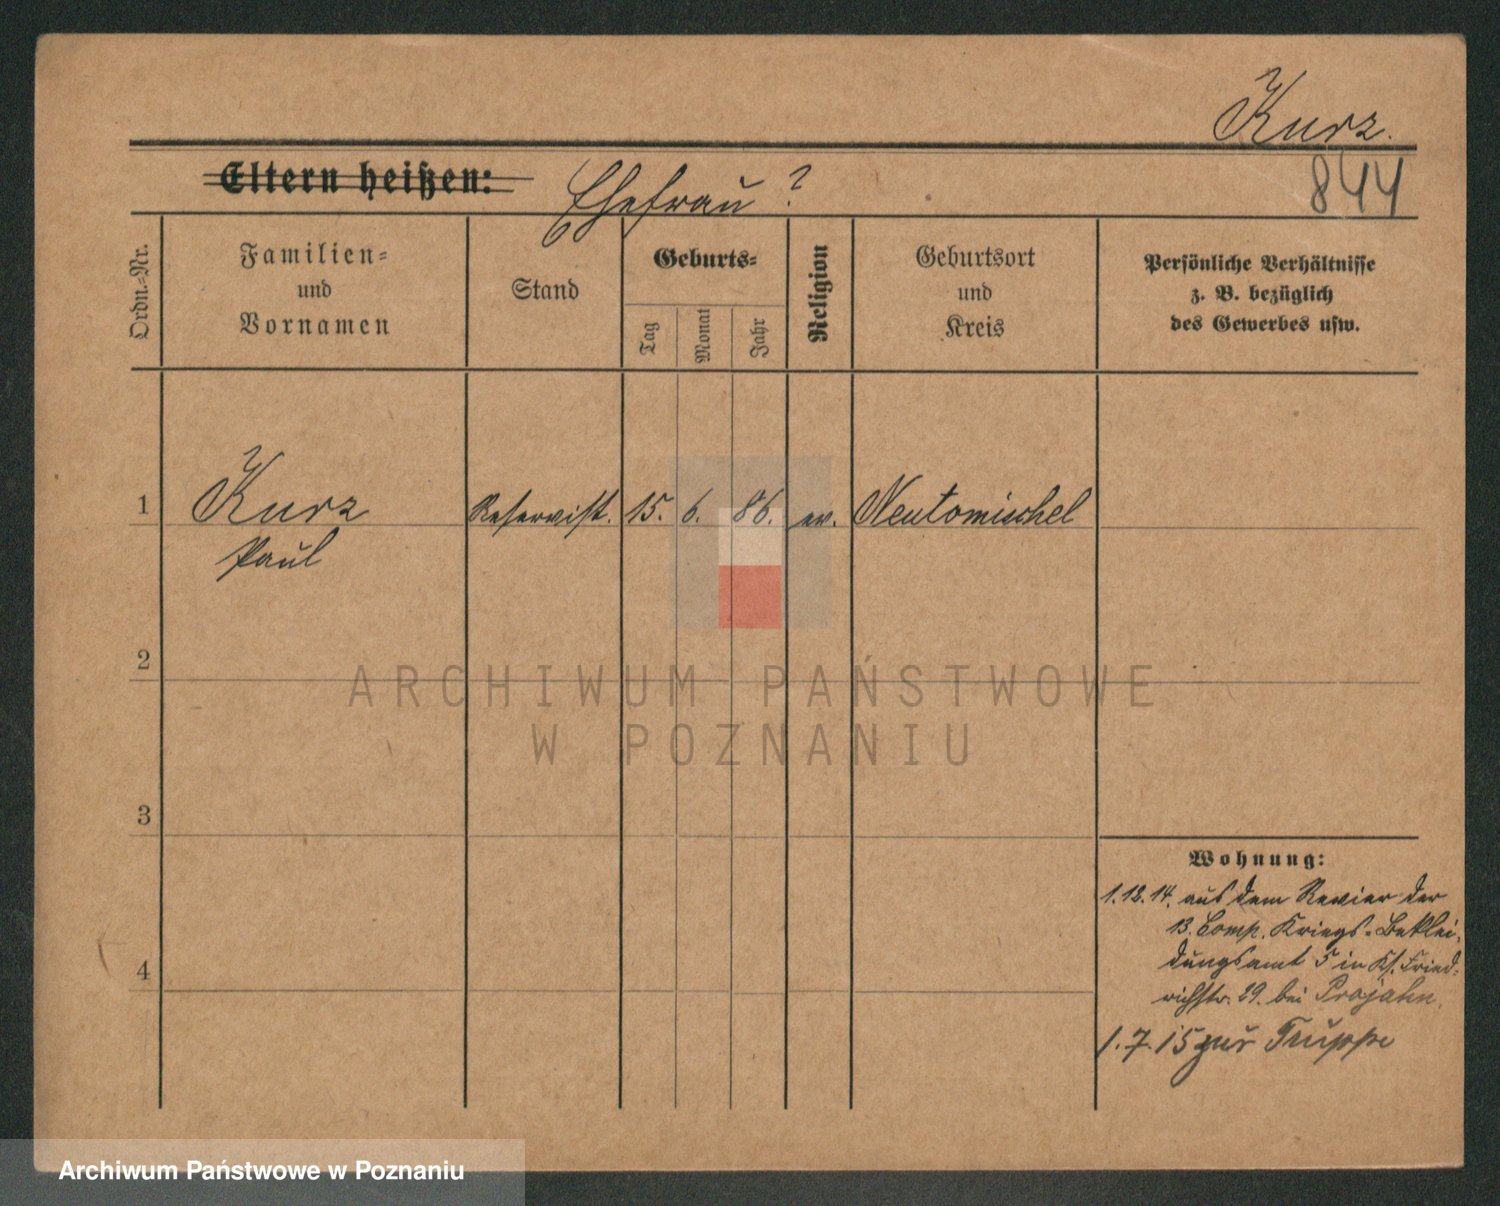 Kurz.
844
Eltern heißen: Ehefrau ?
Ordn.-Nr.
Familien-
und
Vornamen
Stand
Geburts-
Tag
Monat
Jahr
Religion
Geburtsort
und
Kreis
Persönliche Verhältnisse
z. B. bezüglich
des Gewerbes usw.
1 Kurz Reservist. 15. 6. 86. ev. Neutomischel
Paul
2
ARCHIWUM PAŃSTWOWE
W POZNANIU
3
Wohnung:
1.12.14. aus dem Revier der
13. Comp. Kriegs-Beklei-
dungsamt 5 in Fried-
richstr. 29. bei Projahn.
4
1.7.15 zur Truppe
Archiwum Państwowe w Poznaniu